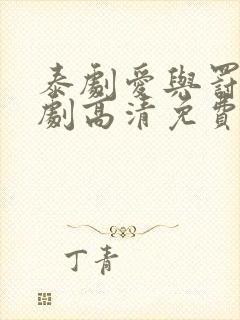 泰劇愛與罰
劇高清免費
丁青